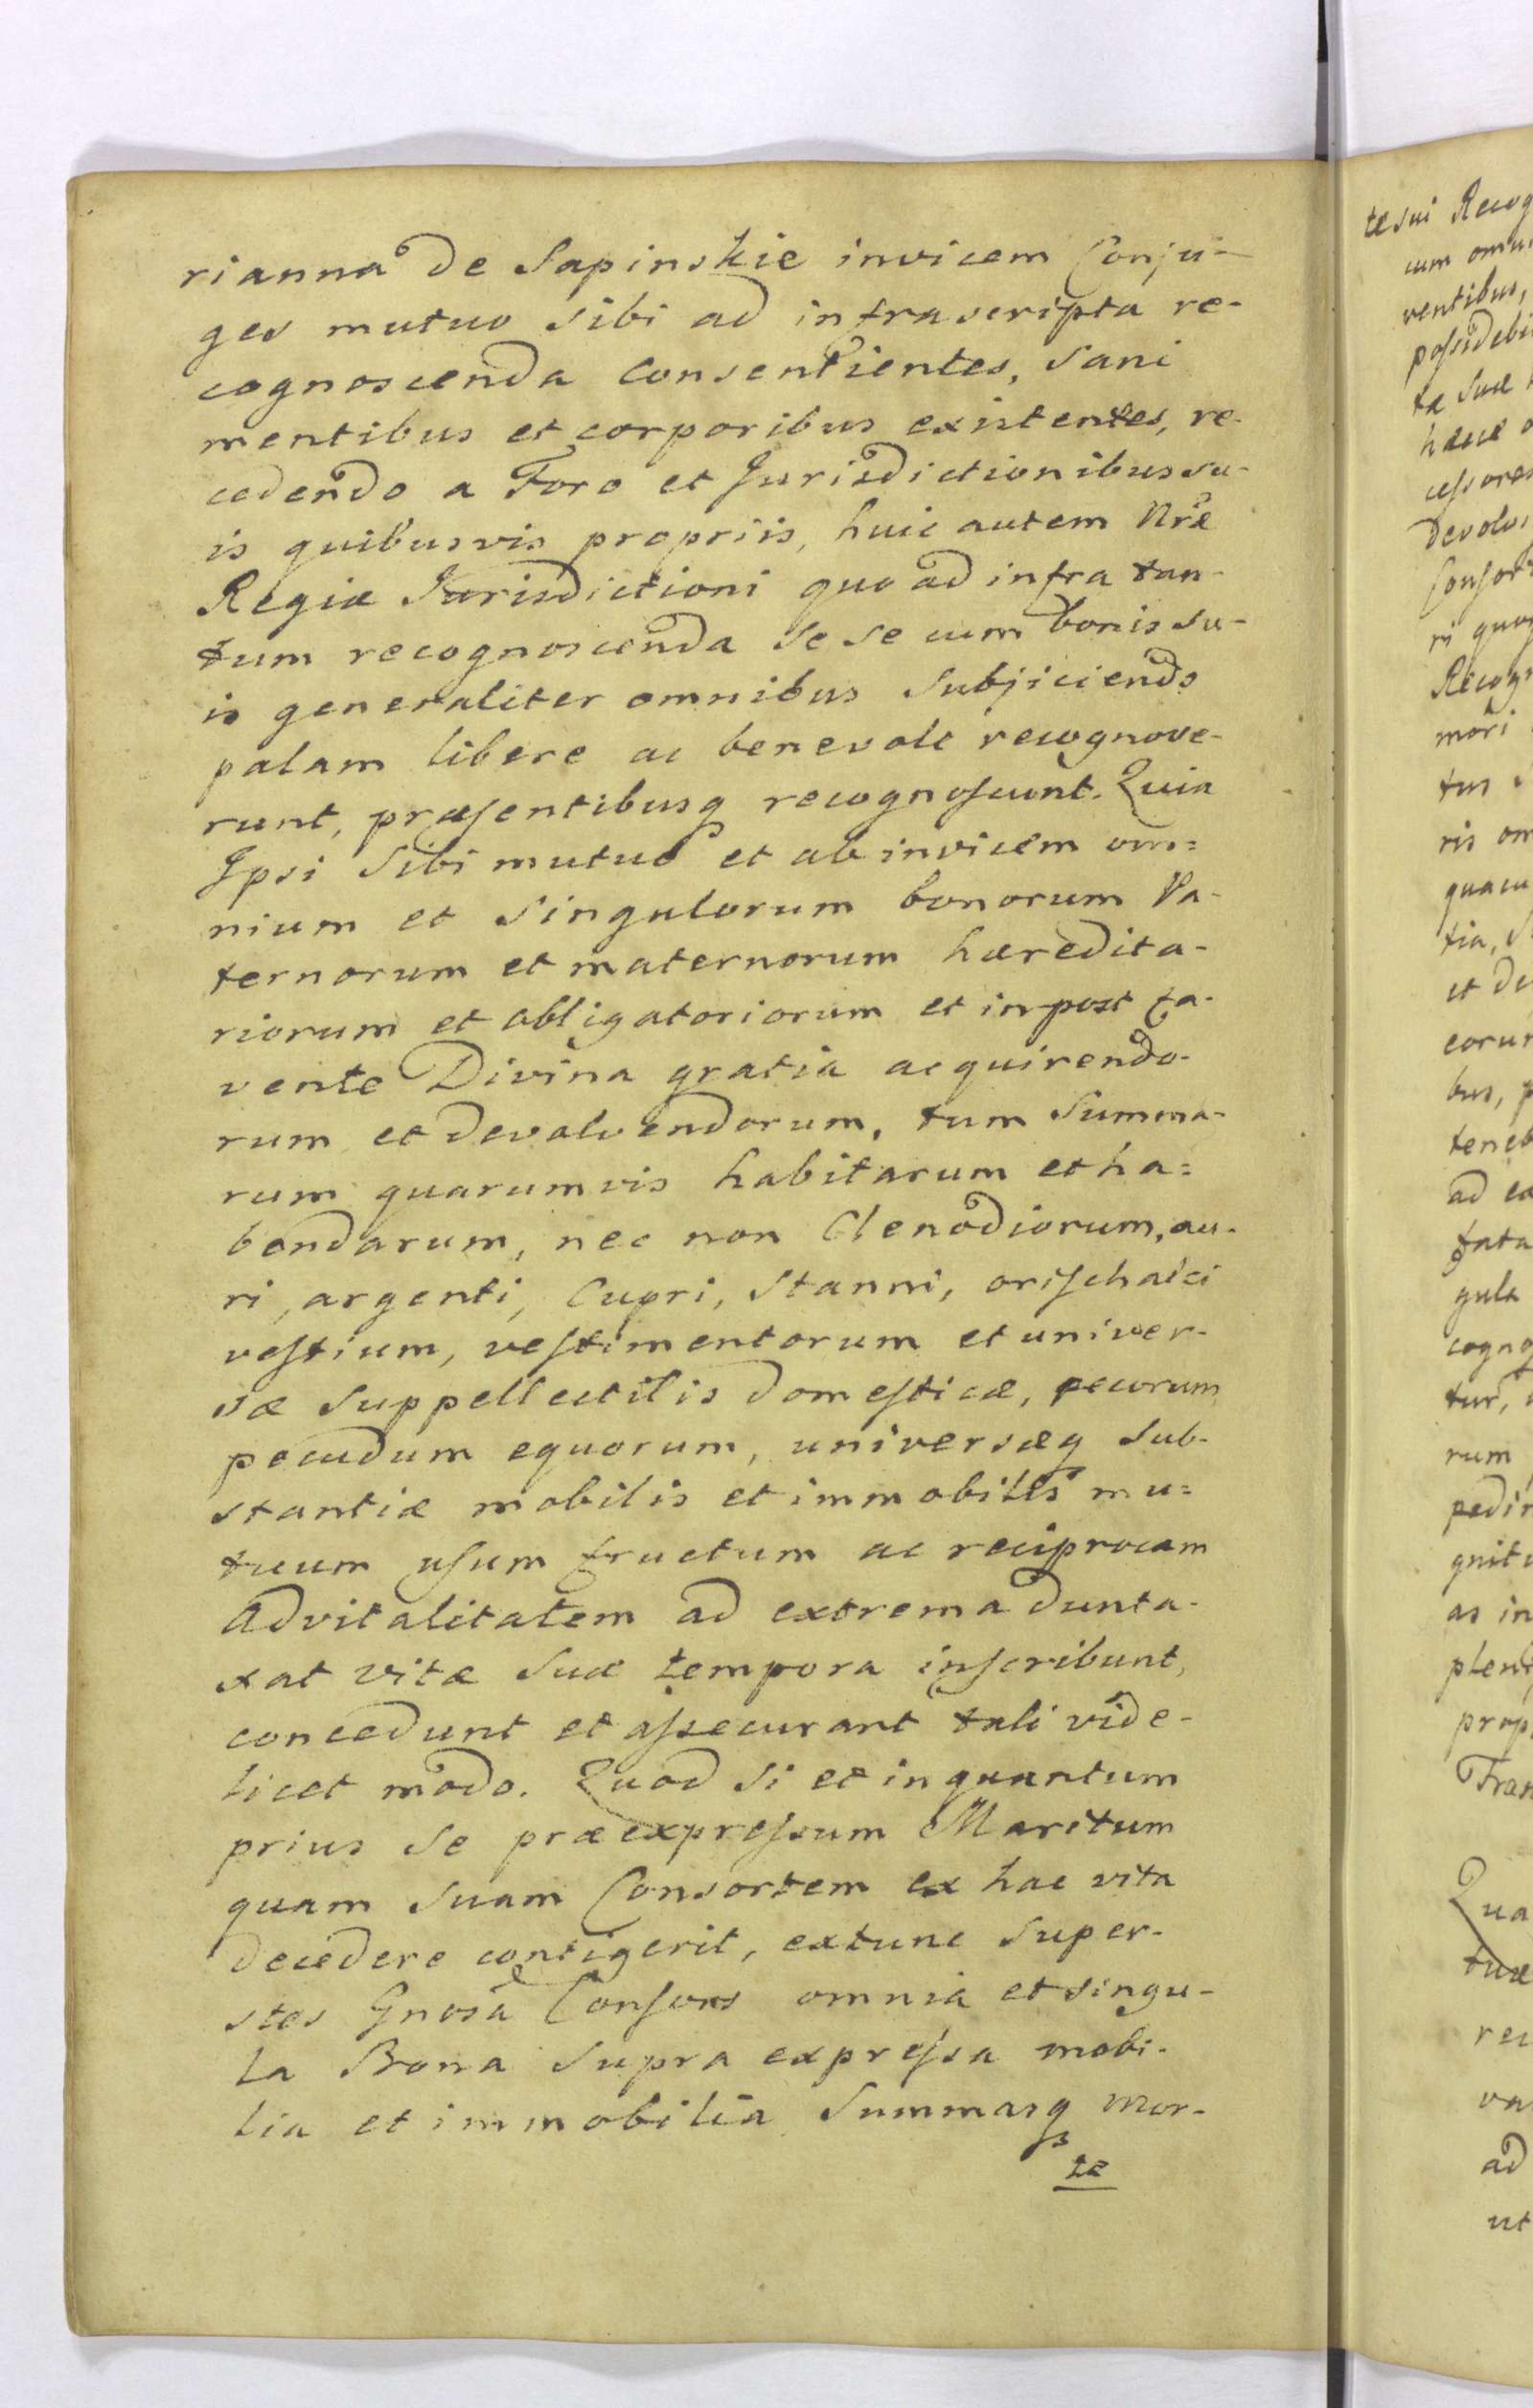 rianna de Sapinskie invicem Conju-
ges mutuo sibi ad infrascripta re-
cognoscenda consentientes, sani
mentibus et corporibus existentes, re-
cedendo a Foro et Jurisdictionibus su-
is quibusvis propriis, huic autem Nræ
Regiæ Jurisdictioni quo ad infra tan-
tum recognoscenda se se cum bonis su-
is generaliter omnibus subjiciendo
palam libere ac benevole recognove-
runt, præsentibusq recognoscunt. Quia
Ipsi sibi mutuo et ab invicem om=
nium et singulorum bonorum Pa-
ternorum et maternorum hæredita-
riorum et obligatoriorum et inpost fa-
vente Divina gratia acquirendo-
rum et devolvendorum, tum summa-
rum quarumvis habitarum et ha=
bendarum, nec non Clenodiorum, au-
ri, argenti, Cupri, Stanni, orischalci
vestium, vestimentorum et univer-
sæ suppellectilis domesticæ, pecorum
pecudum equorum, universæq sub-
stantiæ mobilis et immobilis mu=
tuum usum fructum ac reciprocam
Advitalitatem ad extrema dunta-
xat vitæ suæ tempora inscribunt,
concedunt et assecurant tali vide-
licet modo. Quod si et inquantum
prius se præexpressum Maritum
quam suam Consortem ex hac vita
decedere contigerit, extunc super-
stes Gnosa Consors omnia et singu-
la Bona supra expressa mobi-
lia et immobilia summasq mor-
te
te sui Recog
cum omni
ventibus,
possidebi
tæ suæ
devolv
Consor
ri quo
Recog
mori
tus
ris om
quacu
tia, S
et de
eorum
bus, p
teneb
ad ea
fata
gula
cogno
tur,
rum
pedi
gnit
as in
plen
prop
Fran
Qua
tuæ
rec
va
ad
ut